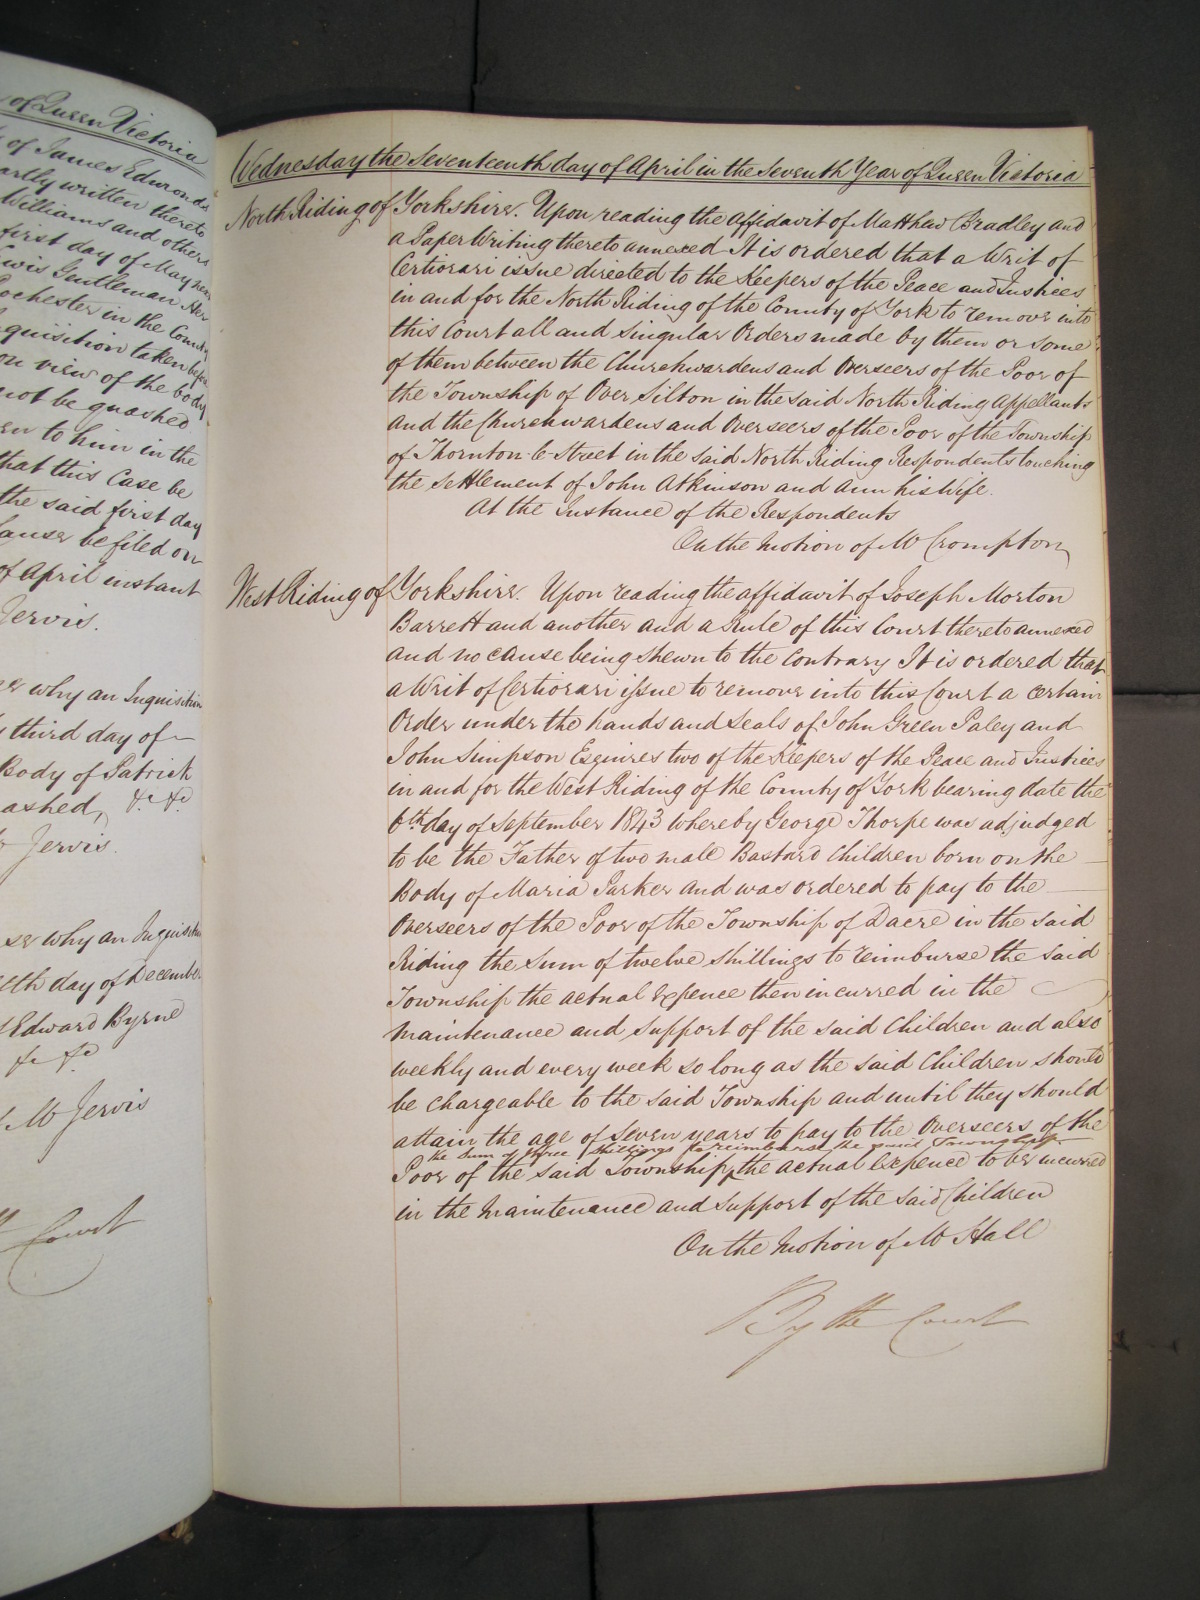 of Queen Victoria
of James Edmonds
partly written thereto
Williams and others
first day of May next
Lewis Gentleman Her
Rochester in the County
Inquisition taken before
on view of the body
not be quashed
en to him in the
that this Case be
the said first day
Cause be filed on
of April instant
Jervis.
why an Inquisition
third day of
Body of Patrick
ashed, &c &c
Jervis.
why an Inquisition
day of December
Edward Byrne
&c &c
Mr Jervis
Court
Wednesday the Seventeenth day of April in the Seventh Year of Queen Victoria
North Riding of Yorkshire. Upon reading the affidavit of Matthew Bradley and
a Paper Writing thereto annexed It is ordered that a Writ of
Certiorari issue directed to the Keepers of the Peace and Justices
in and for the North Riding of the County of York to remove into
this Court all and singular Orders made by them or some
of them between the Churchwardens and Overseers of the Poor of
the Township of Over Silton in the said North Riding Appellants
and the Churchwardens and Overseers of the Poor of the Township
of Thornton-le-Street in the said North Riding Respondents touching
the Settlement of John Atkinson and Ann his Wife.
At the Instance of the Respondents
On the Motion of Mr Crompton
West Riding of Yorkshire. Upon reading the affidavit of Joseph Morton
Barrett and another and a Rule of this Court thereto annexed
and no cause being shewn to the contrary It is ordered that
a Writ of Certiorari issue to remove into this Court a certain
Order under the hands and seals of John Green Paley and
John Simpson Esquires two of the Keepers of the Peace and Justices
in and for the West Riding of the County of York bearing date the
6th day of September 1843 whereby George Thorpe was adjudged
to be the Father of two male Bastard Children born on the
Body of Maria Parker and was ordered to pay to the
Overseers of the Poor of the Township of Dacre in the said
Riding the Sum of twelve Shillings to reimburse the said
Township the actual Expence then incurred in the
maintenance and support of the said Children and also
weekly and every week so long as the said Children should
be chargeable to the said Township and until they should
attain the age of Seven years to pay to the Overseers of the
the Sum of three Shillings to reimburse the said Township
Poor of the said Township the actual Expence to be incurred
in the Maintenance and support of the said Children
On the Motion of Mr Hall
By the Court